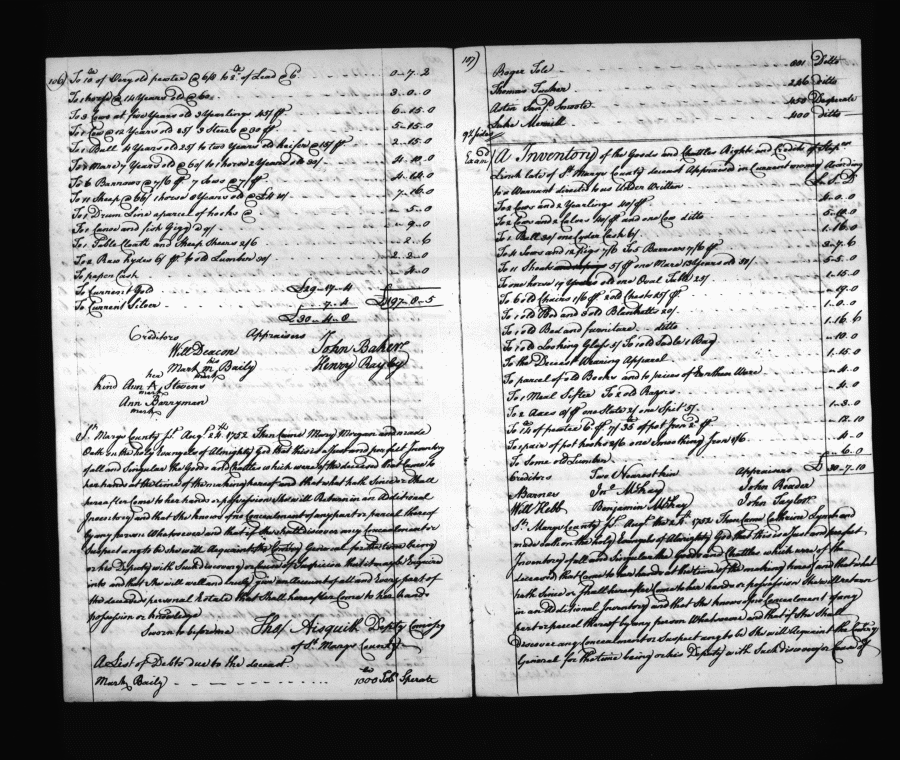 106
To 10 lb of Very old pewter @ 6/4 to 2 lb of Lead @ 6d 0-7-2
To 1 horse @ 14 Years old @ 60/ 3-0-0
To 3 Cows at five Years old 3 Yearlings 45/ 6-15-0
To 1 Cow @ 12 Years old 25/ 3 Steers @ 30/ 5-15-0
To 1 Bull 4 Years old 25/ to two Years old heifer @ 15/ 2-15-0
To 1 Mare 7 Years old @ 60/ to 1 horse 2 Years old 30/ 4-10-0
To 6 Barrows @ 7/6 7 Sows @ 7/ 4-14-0
To 11 Sheep @ 66/ 1 horse 8 Years old @ £4 7-16-0
To 1 Drum Line a parcel of hooks @ 5-0
To 1 Canoe and fish Gigg 9/ 9-0
To 1 Table Cloath and Sheep Sheers 2/6 2-6
To 2 Raw hydes 6/ to old Lumber 30/ 2-2-0
To paper Cash 4-0
To Current Gold £29-17-4
To Current Silver 7-4 £197-8-5
£30-4-8
Creditors Appraisers
Will Deacon John Baker
Mark his m mark Baily Henry Rayley
kind Ann her mark Stevens
Ann Berryman
mark
St. Marys County Sst. Augt. 24th 1752. Then Came Mary Morgan and made
Oath on the holy Evangels of Almighty God that this is a Just and perfect Inventory
of all and Singular the Goods and Chattles which were of the deceased that Came to
her hands at the time of the making hereof and that what hath Since or Shall
hereafter Come to her hands or possession She will Return in an Additional
Inventory and that She knows of no Concealment of any part or parcel thereof
by any person Whatsoever and that if she shall discover any Concealment or
Suspect any to be she will Acquaint the Comissary General for the time being
or his Deputy with Such discovery or Cause of Suspicion that it may be Enquired
into and that She will well and truly give an Account of all and Every part of
the deceaseds personal Estate that Shall hereafter Come to her hands
possession or knowledge
Sworn to before me Thos. Aisquith Deputy Comisry
of St. Marys County
A List of Debts due to the deceast
Mark Baily 1000 lbs Tobo. Sperate
107
Roger Tole 801 Ditto
Thomas Tucker 246 ditto
450 Desperate
Luke Merrill 400 ditto
A Inventory of the Goods and Chattles Right and Credits of Stephen
Lynch late of St. Marys County deceast Appraised in Current money According
to a Warrant directed to us Under Written £ S D
To 2 Cows and 2 Yearlings 40/ 4-0-0
To 2 Cows and 2 Calves 40/ and one Cow ditto
To 1 Bull 30/ one Cyder Cask 6/ 1-16-0
To 4 Sows and 12 pigs 7/6 To 5 Barrows 7/6
To 11 Shoats 5/ one Mare 13 Years old 50/ 5-5-0
To one horse 17 Years old one Oval Table 25/ 1-15-0
To 6 old Chairs 1/6 2 old Chests 25/
To 1 old Bed and 3 old Blanketts 20/ 1-0-0
To 1 old Bed and furniture ditto
To 1 old Looking Glass 5/ To 1 old Table 1 Bag
To the Deceast Wearing Apparel 1-15-0
To parcel of old Books and 16 pieces of Earthen Ware 4-0
To 1 Meal Sifter To 2 old Rasors 4-0
To 2 Axes one Slate 2/ one Spit 5/ 1-3-0
To 14 of pewter 35 of pot Iron 2d 12-10
To 1 pair of pot hooks 2/6 one Smoothing Iron 1/6 4-0
To Some old Lumber 6-0
Creditors Two Nearest kin Appraisers £30-7-10
A Barnes Jno. McKay John Reeder
Will Hebb Benjamin McKay John Taylor
St. Marys County Sst. Augt. the 24th 1752. Then Came Catherine Lynch and
made oath on the holy Evangels of Almighty God that this is a Just and perfect
Inventory of all and Singular the Goods and Chattles which were of the
deceased that Came to her hands at the time of the making hereof and that what
hath Since or Shall hereafter Come to her hands or possession She will return
in an Additional Inventory and that She knows of no Concealment of any
part or parcel thereof by any person Whatsoever and that if She Shall
discover any Concealment or Suspect any to be She will Acquaint the Comissary
General for the time being or his Deputy with Such discovery or Cause of